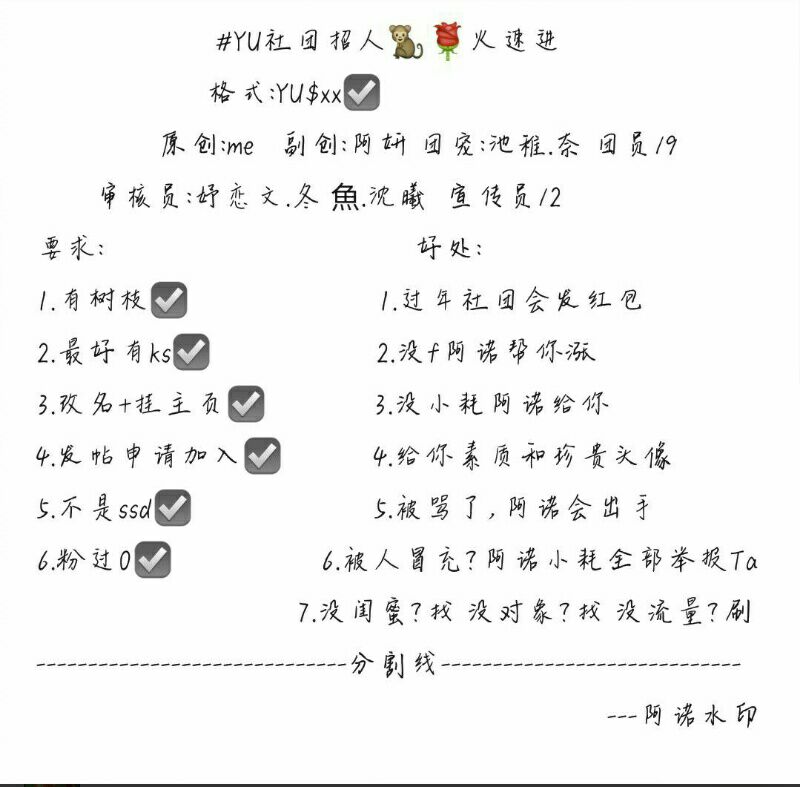 #YU社团招人🐒🌹火速进
格式:YU$xx✅
原创:me 副创:阿妍 团宠:池雅.奈 团员19
审核员:妤恋文.冬魚.沈曦 宣传员12
要求: 好处:
1.有树枝✅ 1.过年社团会发红包
2.最好有ks✅ 2.没f阿诺帮你涨
3.改名+挂主页✅ 3.没小耗阿诺给你
4.发帖申请加入✅ 4.给你素质和珍贵头像
5.不是ssd✅ 5.被骂了,阿诺会出手
6.粉过0✅ 6.被人冒充?阿诺小耗全部举报Ta
7.没闺蜜?找 没对象?找 没流量?刷
------------------------------分割线-----------------------------
---阿诺水印